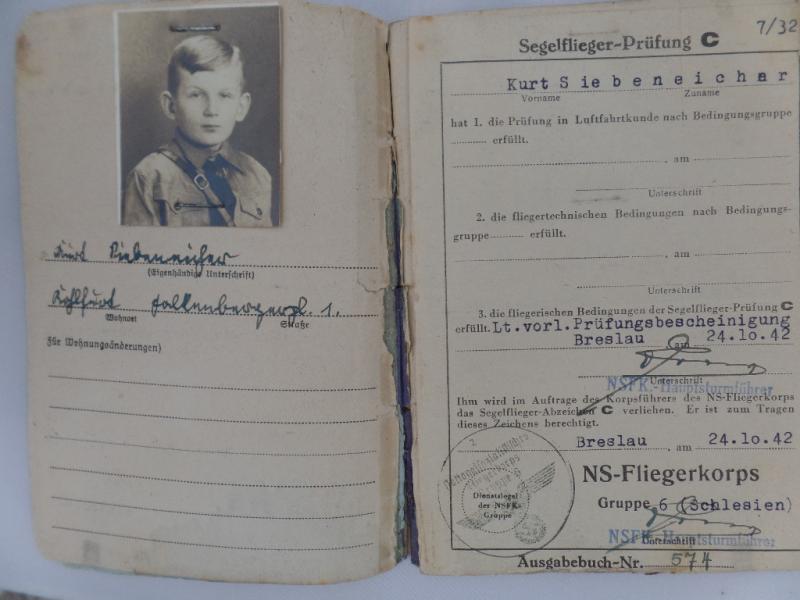 Kurt Siebeneicher
(Eigenhändige Unterschrift)
Kohlfurt Falkenbergerpl. 1.
Wohnort Straße
Für Wohnungsänderungen)
7/32
Segelflieger-Prüfung C
Kurt Siebeneicher
Vorname Zuname
hat 1. die Prüfung in Luftfahrtkunde nach Bedingungsgruppe
erfüllt.
am
Unterschrift
2. die fliegertechnischen Bedingungen nach Bedingungs-
gruppe erfüllt.
am
Unterschrift
3. die fliegerischen Bedingungen der Segelflieger-Prüfung C
erfüllt. Lt.vorl.Prüfungsbescheinigung
Breslau am 24.10.42
Unterschrift
NSFK.-Hauptsturmführer
Ihm wird im Auftrage des Korpsführers des NS-Fliegerkorps
das Segelflieger-Abzeichen C verliehen. Er ist zum Tragen
dieses Zeichens berechtigt.
Breslau, am 24.10.42
NS-Fliegerkorps
Gruppe 6 (Schlesien)
NSFK.-Hauptsturmführer
Unterschrift
Nationalsozialistisches
Fliegerkorps
Gruppe 6
Dienstsiegel
der NSFK-
Gruppe
Ausgabebuch-Nr. 574